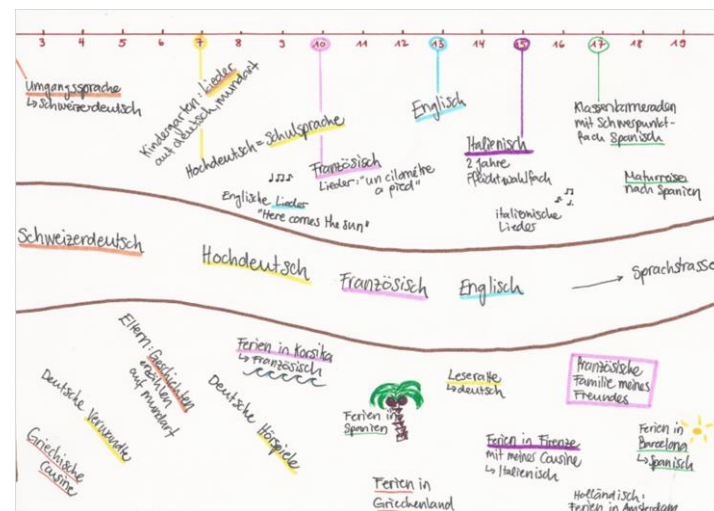 3 4 5 6 7 8 9 10 11 12 13 14 15 16 17 18 19
Umgangssprache
↳ Schweizerdeutsch
Kindergarten: Lieder
auf deutsch, mundart
Hochdeutsch = Schulsprache
Französisch
Lieder: "un cilomètre
a pied"
Englische Lieder
"Here comes the sun"
Englisch
Italienisch
2 Jahre
Pflichtwahlfach
italienische
Lieder
Klassenkameraden
mit Schwerpunkt-
fach Spanisch
Maturreise
nach Spanien
Schweizerdeutsch
Hochdeutsch
Französisch
Englisch
→ Sprachstrasse
Eltern: Geschichten
erzählen
auf mundart
Deutsche Verwandte
Griechische
Cousine
Ferien in Korsika
↳ Französisch
Deutsche Hörspiele
Ferien in
Spanien
Ferien in
Griechenland
Leseratte
↳ deutsch
Ferien in Firenze
mit meines Cousine
↳ Italienisch
Französische
Familie meines
Freundes
Ferien in
Barcelona
↳ Spanisch
Holländisch:
Ferien in Amsterdam